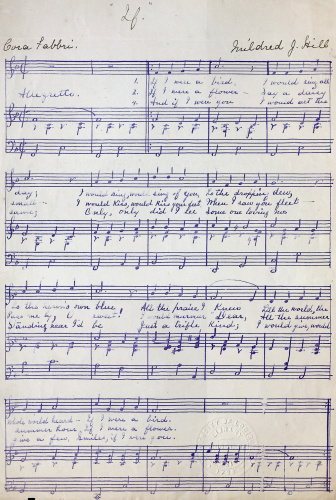 "If"
Cora Fabbri.
Mildred J. Hill
1. If I were a bird, I would sing all
Allegretto. 2. If I were a flower - Say a daisy
4. And if I were you I would act the
day; I would sing, would sing of you, To the dropping dew,
small - I would kiss, would kiss your feet When I saw you fleet -
same; Only, only did I see Some one loving me
To the own blue, All the praise I knew Till the world, the
Pass me by, O sweet! Dear, All the summer
Standing near I'd be Just a trifle kind; I would give, would
whole world heard - If I were a bird.
summer hour, If I were a flower.
give a few, Smiles, if I were you.